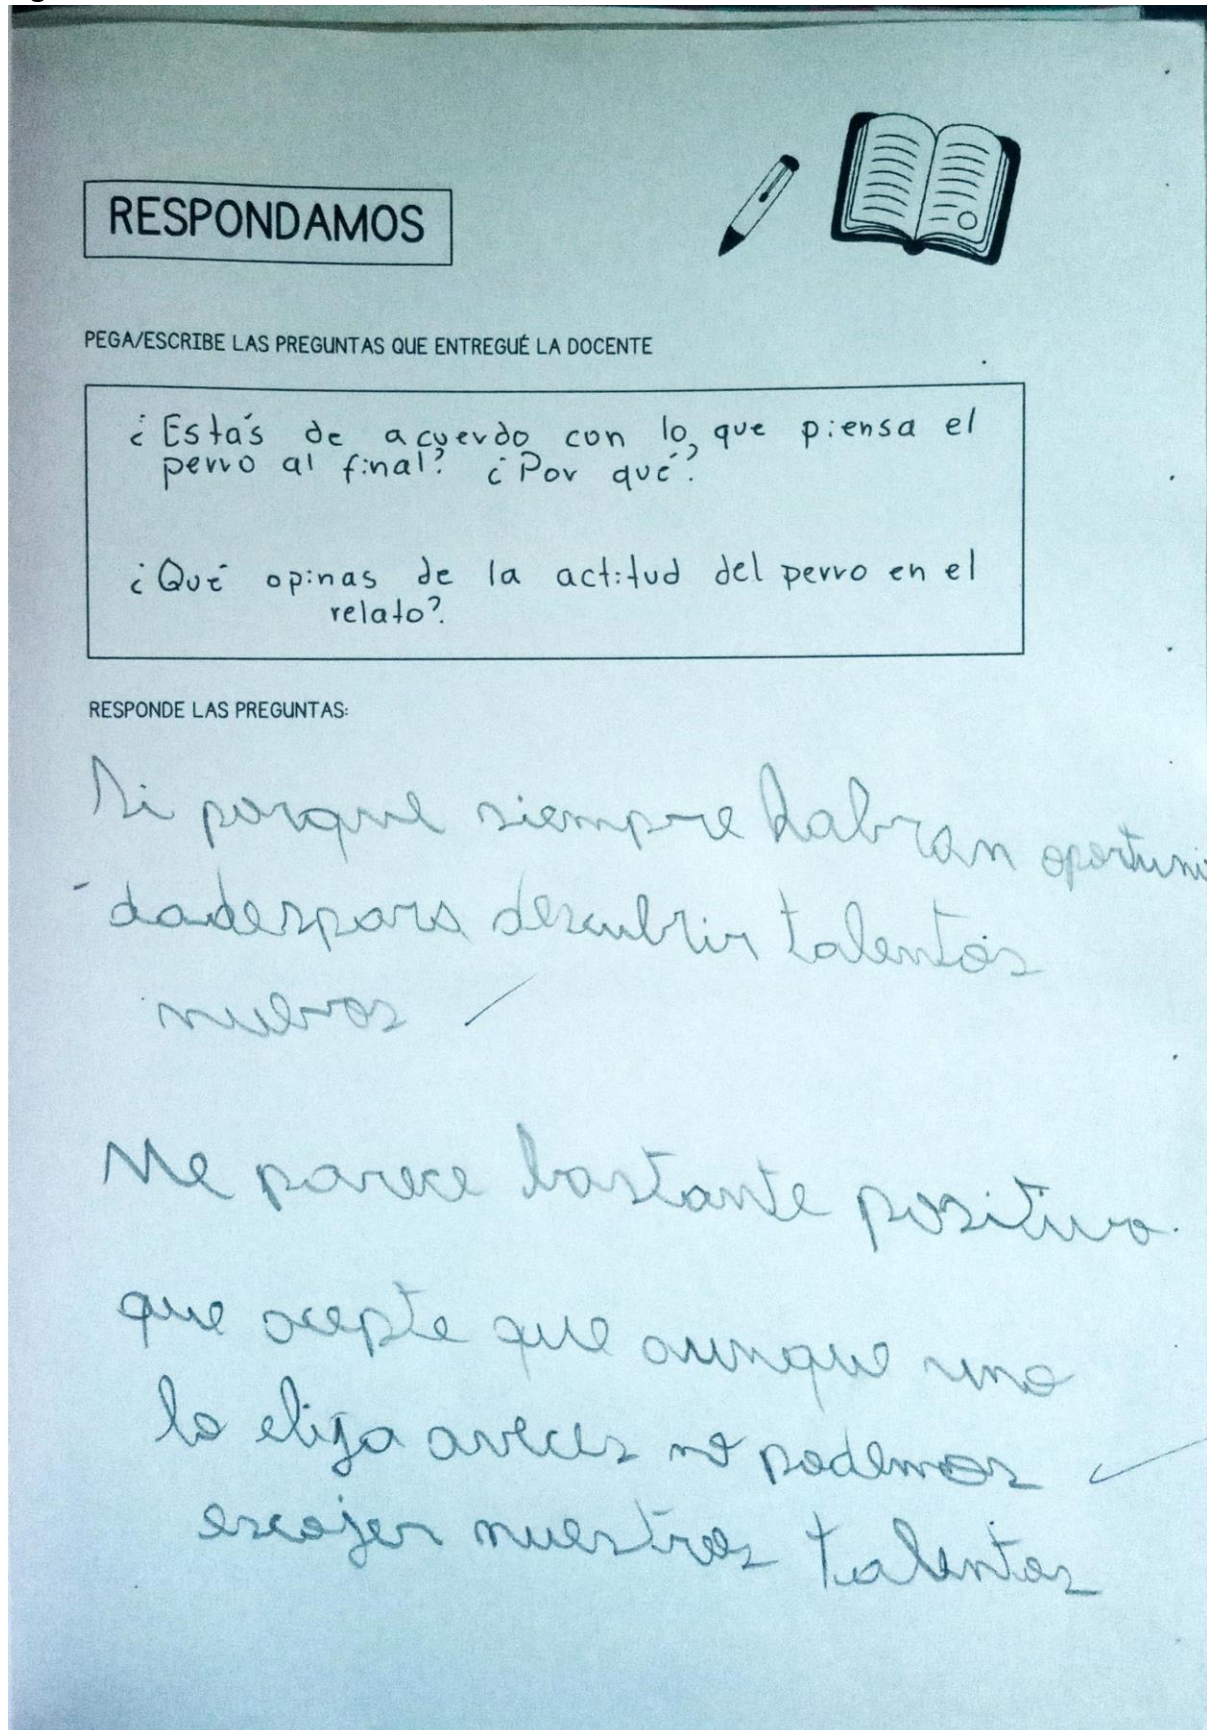 RESPONDAMOS
PEGA/ESCRIBE LAS PREGUNTAS QUE ENTREGUÉ LA DOCENTE
¿Estás de acuerdo con lo que piensa el
perro al final? ¿Por qué?
¿Qué opinas de la actitud del perro en el
relato?
RESPONDE LAS PREGUNTAS:
Si porque siempre habran oportuni
-dades para descubrir talentos
nuevos
Me parece bastante positivo
que acepte que aunque uno
lo elija aveces no podemos
escojer nuestros talentos